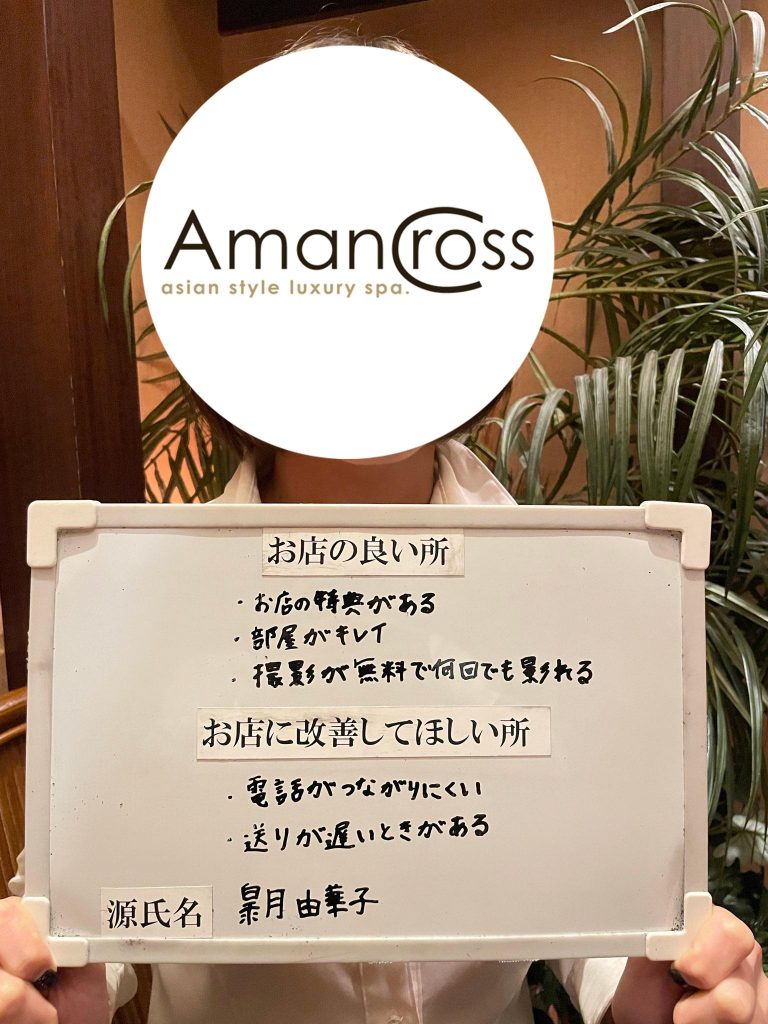 AmanCross
asian style luxury spa.
お店の良い所
・お店の特典がある
・部屋がキレイ
・撮影が無料で何回でも影れる
お店に改善してほしい所
・電話がつながりにくい
・送りが遅いときがある
源氏名 皐月 由華子